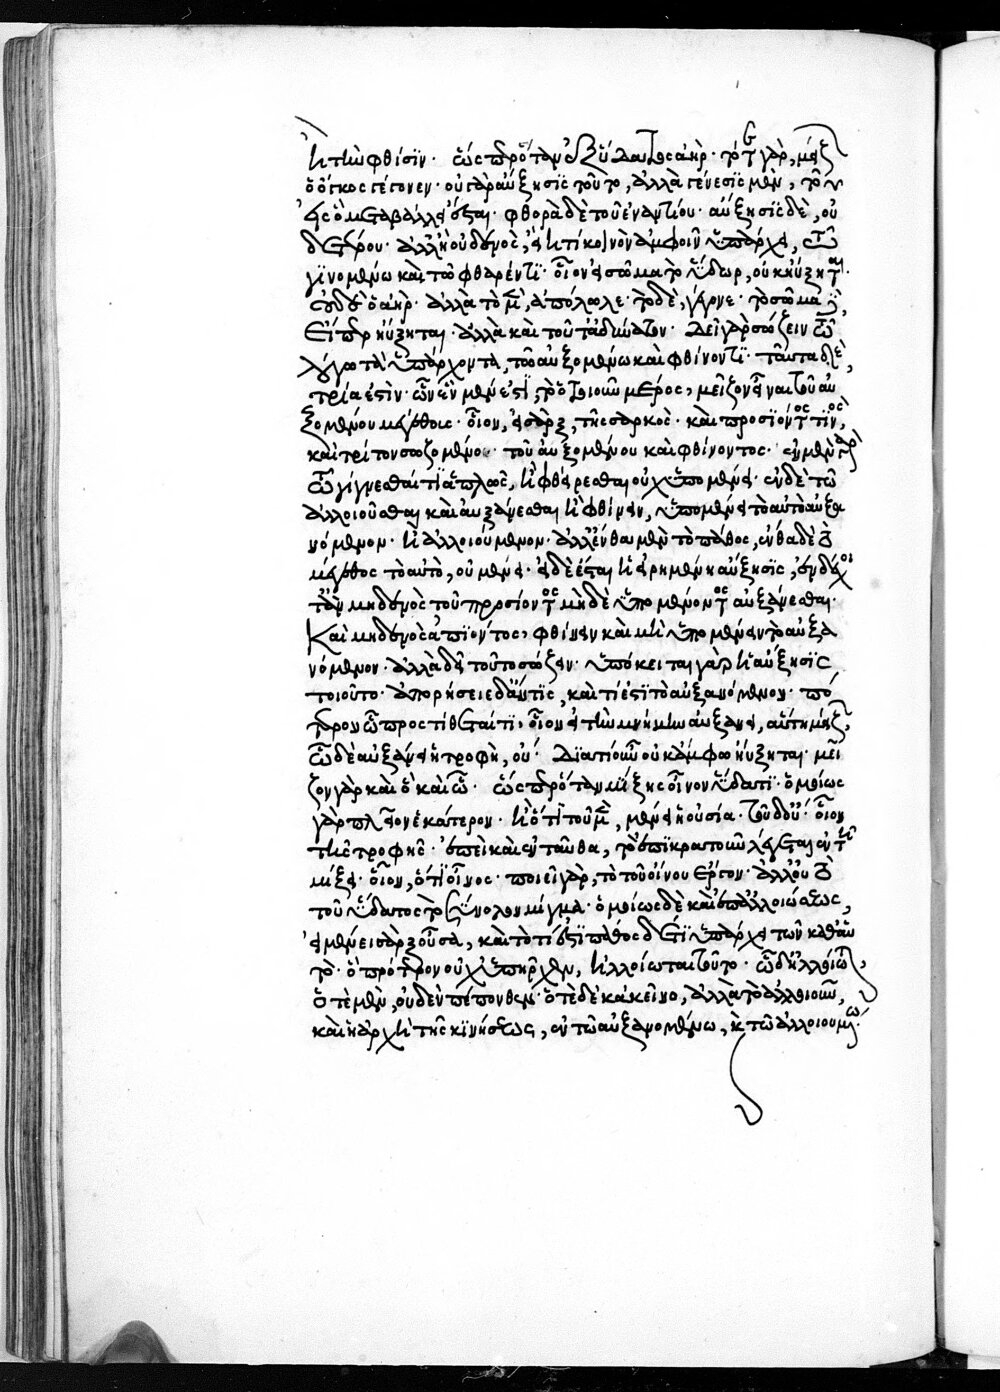 ἢ τὴν φθίσιν· ὥσπερ ὅταν ἐξ ὕδατος ἀήρ· τότε γὰρ, μείζων
ὁ ὄγκος γέγονεν· οὐ γὰρ αὔξησις τοῦτο, ἀλλὰ γένεσις μὲν, τοῦ
εἰς ὃ μεταβάλλει ἔσται· φθορὰ δὲ τοῦ ἐναντίου· αὔξησις δὲ, οὐ
δετέρου· ἀλλ' ἢ οὐδενὸς, εἴ τι κοινὸν ἀμφοῖν ὑπάρχει, τῷ
γινομένω καὶ τῶ φθαρέντι· οἷον εἰ σῶμα τὸ ὕδωρ, οὐκ ηὔξηται·
οὐδὲ ὁ ἀήρ· ἀλλὰ τὸ μὲν, ἀπόλωλε· τὸ δὲ, γέγονε· τὸ σῶμα δέ,
εἴπερ ηὔξηται· ἀλλὰ καὶ τοῦτ' ἀδύνατον· δεῖ γὰρ σώζειν τῶ
λόγω τὰ ὑπάρχοντα, τῶ αὐξομένω καὶ φθίνοντι· ταῦτα δὲ,
τρία ἐστὶν· ὧν ἓν μέν ἐστι, τὸ ὁτιοῦν μέρος, μεῖζον εἶναι τοῦ αὐ
ξομένου μεγέθους· οἷον, εἰ σὰρξ, τῆς σαρκός· καὶ προσιόντος τινὸς,
καὶ τρίτον σωζομένου τοῦ αὐξομένου καὶ φθίνοντος· ἐν μὲν γὰρ
τῶ γίγνεσθαί τι ἁπλῶς, ἢ φθείρεσθαι οὐχ ὑπομένει· ἐν δὲ τῶ
ἀλλοιοῦσθαι καὶ αὐξάνεσθαι ἢ φθίνειν, ὑπομένει τὸ αὐτὸ αὐξα
νόμενον· ἢ ἀλλοιούμενον· ἀλλ' ἔνθα μὲν τὸ πάθος, ἔνθα δὲ τὸ
μέγεθος τὸ αὐτὸ, οὐ μένει· εἰ δὲ ἔσται ἡ εἰρημένη αὔξησις, ἐνδέχοι
τ' ἂν μηδενὸς τοῦ προσιόντος μηδὲ ὑπομένοντος αὐξάνεσθαι·
Καὶ μηδενὸς ἀπιόντος, φθίνειν καὶ μὴ ὑπομένειν τὸ αὐξα
νόμενον· ἀλλὰ δεῖ τοῦτο σώζειν· ὑπόκειται γὰρ ἡ αὔξησις
τοιοῦτο· ἀπορήσειε δ' ἄν τις, καὶ τί ἐστι τὸ αὐξανόμενον· πό
τερον ὧ προστίθεταί τι, οἷον εἰ τὴν κνήμην αὐξάνει, αὕτη μείζων
ὧ δὲ αὐξάνει ἡ τροφὴ, οὐ· διατί οὖν οὐκ ἄμφω ηὔξηται· μεῖ
ζον γὰρ καὶ ὃ καὶ ὧ· ὥσπερ ὅταν μίξης οἶνον ὕδατι· ὁμοίως
γὰρ πλεῖον ἑκάτερον· ἢ ὅτι τοῦ μὲν, μένει ἡ οὐσία· τοῦ δ' οὔ· οἷον
τῆς τροφῆς· ἐπεὶ καὶ ἐνταῦθα, τὸ ἐπικρατοῦν λέγεται ἐν τῆ
μίξει· οἷον, ὅτι οἶνος· ποιεῖ γὰρ, τὸ τοῦ οἴνου ἔργον· ἀλλ' οὐ τὸ
τοῦ ὕδατος τὸ σύνολον μίγμα· ὁμοίως δὲ καὶ ἐπ' ἀλλοιώσεως,
εἰ μένει σὰρξ οὖσα, καὶ τὸ τί ἐστι πάθος δέ τι ὑπάρχει τῶν καθ' αὑ
τὸ· ὃ πρότερον οὐχ ὑπῆρχεν, ἠλλοίωται τοῦτο· ὧ δ' ἠλλοίωται,
ὁτὲ μὲν, οὐδὲν πέπονθεν· ὁτὲ δὲ κἀκεῖνο, ἀλλὰ τὸ ἀλλοιοῦν,
καὶ ἡ ἀρχὴ τῆς κινήσεως, ἐν τῶ αὐξανομένω, καὶ τῶ ἀλλοιουμένω·